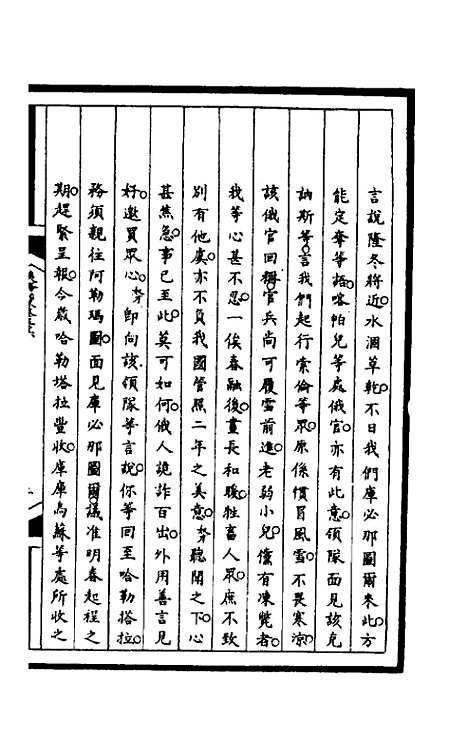 言說隆冬將近水涸草乾不日我們庫必那圖爾來此方
能定奪等語喀帕兒等處俄官亦有此意領隊面見該克
訥斯等言我們起行索倫等眾原係慣冒風雪不畏寒涼
該俄官回稱官兵尚可履雪前進老弱小兒儻有凍斃者
我等心甚不忍一俟春融後晝長和暖牲畜人眾庶不致
別有他虞亦不負我國管照二年之美意等聽聞之下心
甚焦急事已至此莫可如何俄人詭詐百出外用善言見
好邀買眾心等即向該領隊等言說你等回至哈勒塔拉
務須親往阿勒瑪圖面見庫必那圖爾議准明春起程之
期趕緊呈報今歲哈勒塔拉豐收庫庫烏蘇等處所收之